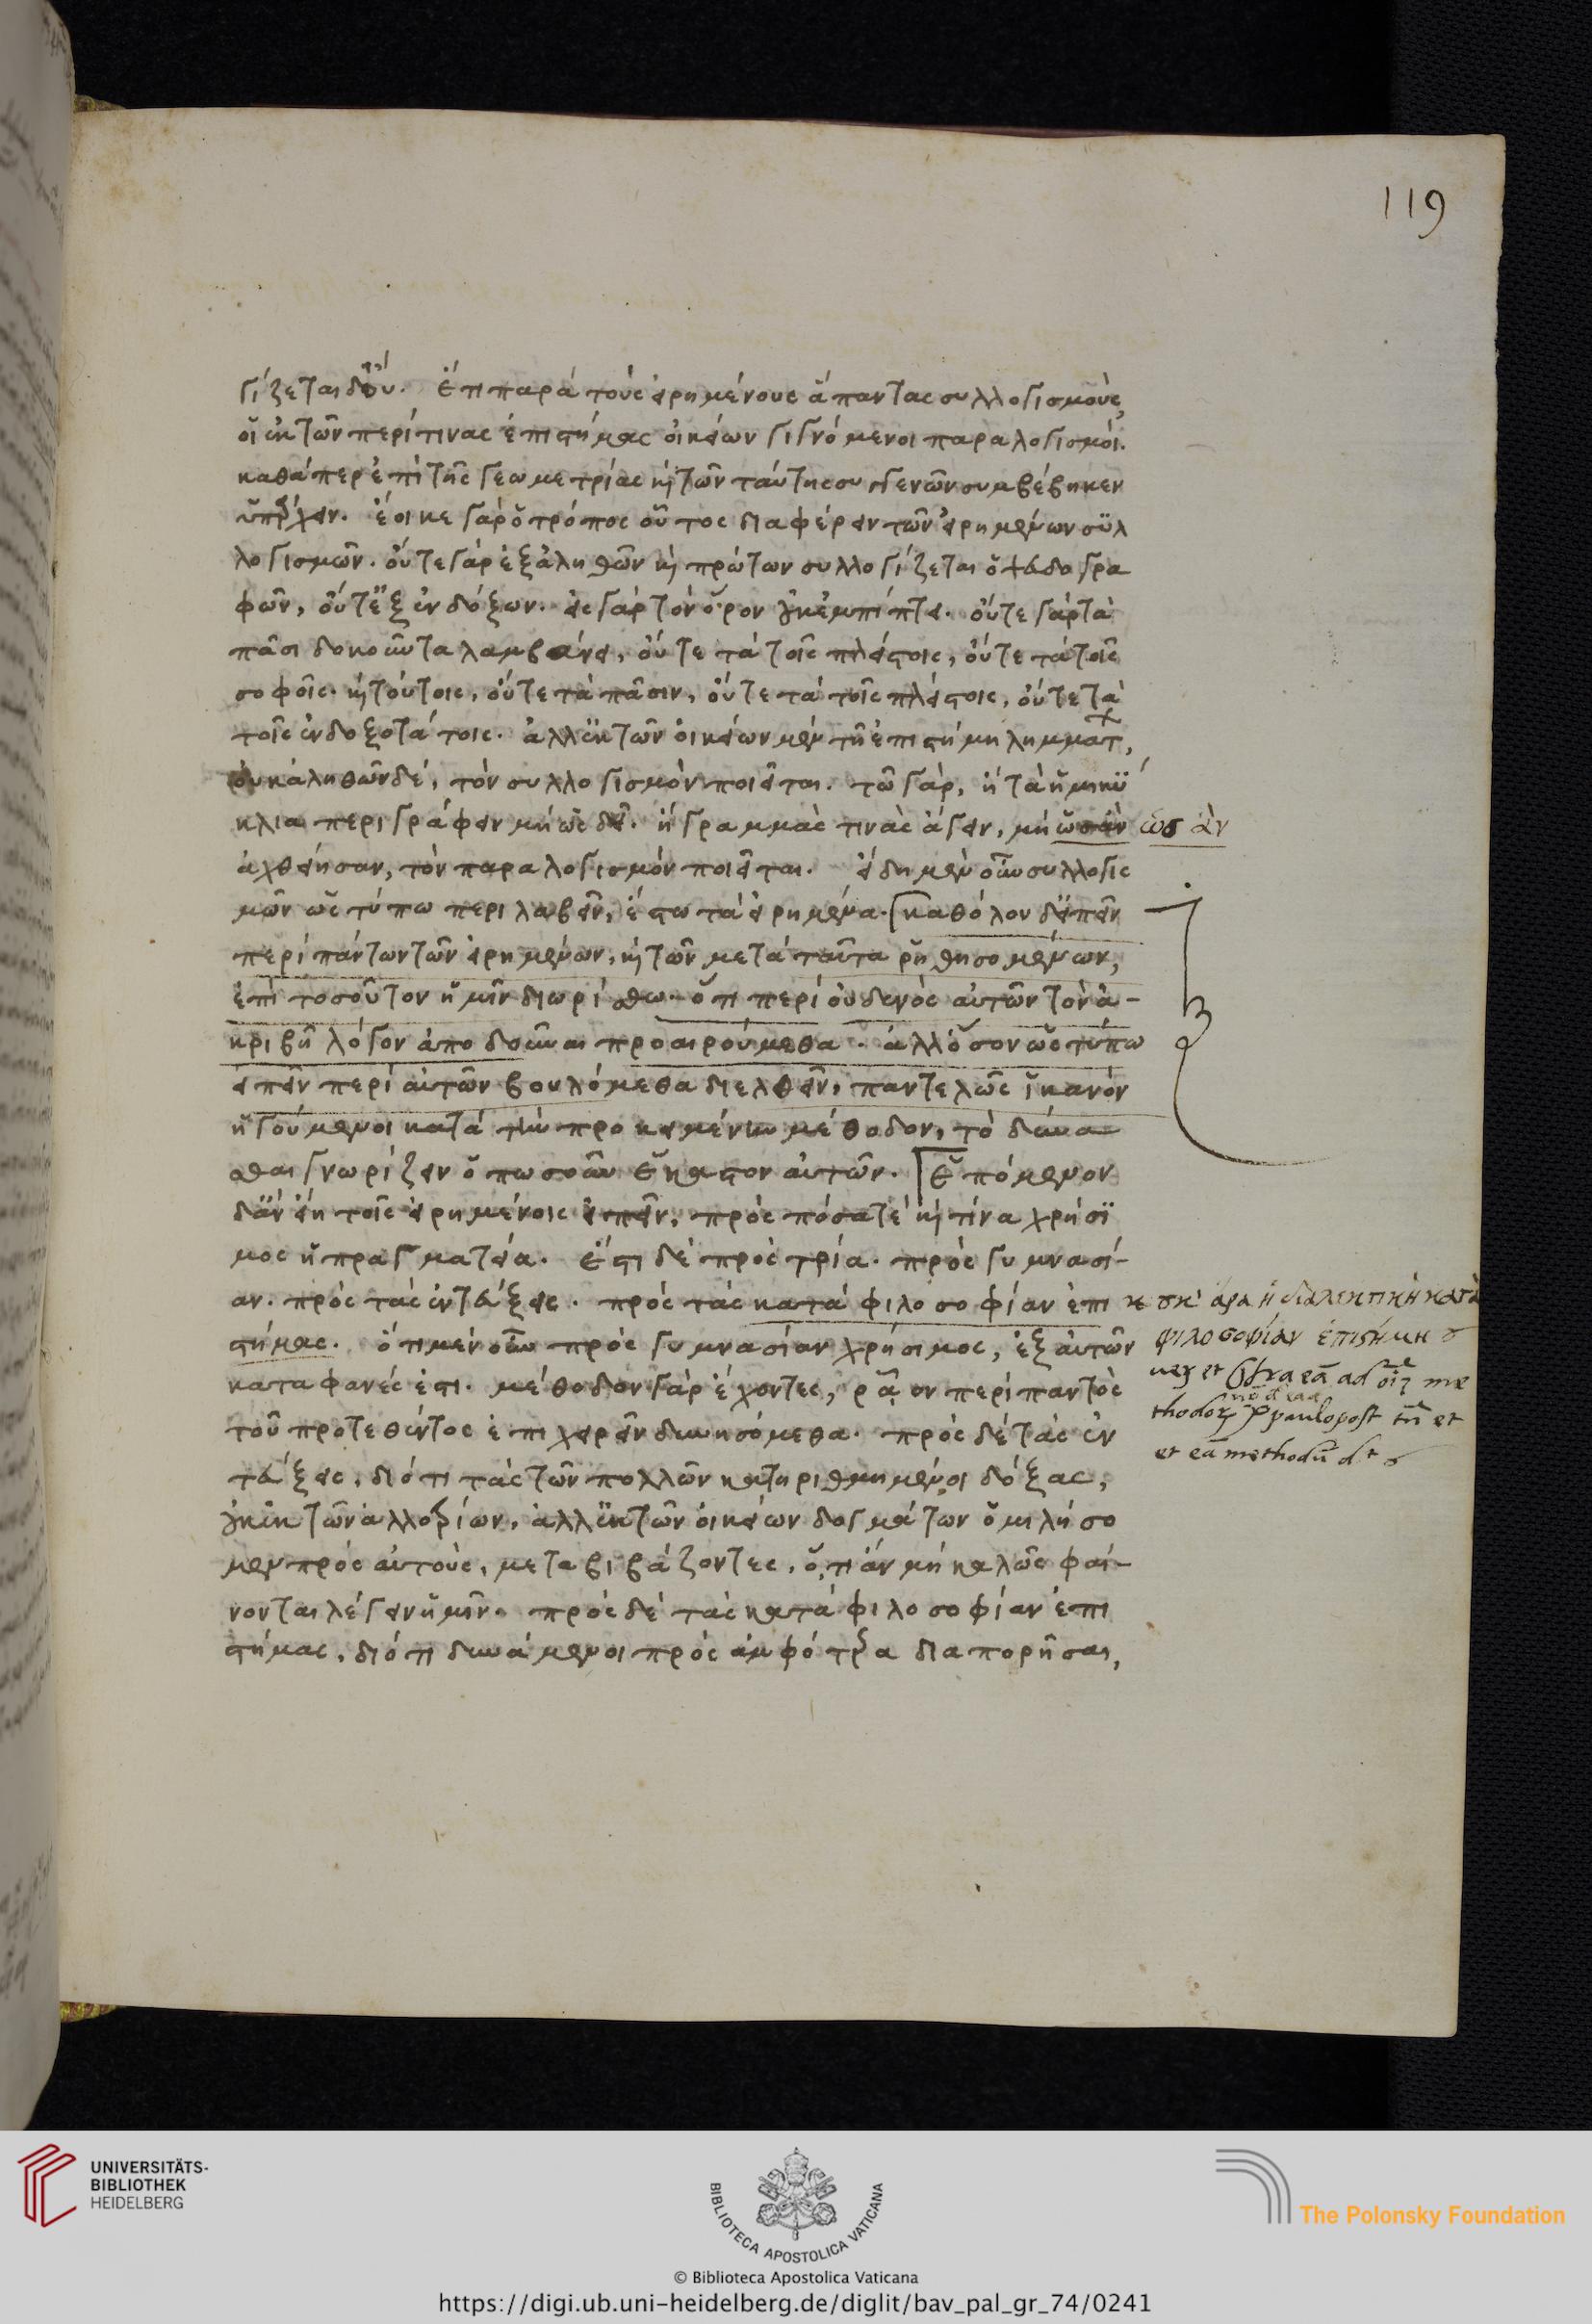 119
γίζεται δ' οὔ. ἔτι παρὰ τοὺς εἰρημένους ἅπαντας συλλογισμοὺς,
οἱ ἐκ τῶν περί τινας ἐπιστήμας οἰκείων γιγνόμενοι παραλογισμοί.
καθάπερ ἐπὶ τῆς γεωμετρίας καὶ τῶν ταύτης συγγενῶν συμβέβηκεν
ὑπάρχειν. ἔοικε γὰρ ὁ τρόπος οὗτος διαφέρειν τῶν εἰρημένων συλ
λογισμῶν. οὔτε γὰρ ἐξ ἀληθῶν καὶ πρώτων συλλογίζεται ὁ ψευδογρα
φῶν, οὔτ' ἐξ ἐνδόξων. εἰς γὰρ τὸν ὅρον οὐκ ἐμπίπτει. οὔτε γὰρ τὰ
πᾶσι δοκοῦντα λαμβάνει, οὔτε τὰ τοῖς πλείστοις, οὔτε τὰ τοῖς
σοφοῖς. καὶ τούτοις, οὔτε τὰ πᾶσιν, οὔτε τὰ τοῖς πλείστοις, οὔτε τὰ
τοῖς ἐνδοξοτάτοις. ἀλλ' ἐκ τῶν οἰκείων μὲν τῇ ἐπιστήμῃ λημμάτων,
οὐκ ἀληθῶν δέ, τὸν συλλογισμὸν ποιεῖται. τῷ γὰρ, ἢ τὰ ἡμικύ
κλια περιγράφειν μὴ ὡς δεῖ. ἢ γραμμάς τινας ἄγειν, μὴ ὡσὰν ὡς ἂν
ἀχθείησαν, τὸν παραλογισμὸν ποιεῖται. εἴδη μὲν οὖν συλλογισ
μῶν ὡς τύπῳ περιλαβεῖν, ἔστω τὰ εἰρημένα. καθόλου δ' εἰπεῖν
περὶ πάντων τῶν εἰρημένων, καὶ τῶν μετὰ ταῦτα ῥηθησομένων,
ἐπὶ τοσοῦτον ἡμῖν διωρίσθω. ὅτι περὶ οὐδενὸς αὐτῶν τὸν ἀ-
κριβῆ λόγον ἀποδοῦναι προαιρούμεθα. ἀλλ' ὅσον ὡς τύπῳ
εἰπεῖν περὶ αὐτῶν βουλόμεθα διελθεῖν, παντελῶς ἱκανὸν
ἡγούμενοι κατὰ τὴν προκειμένην μέθοδον, τὸ δύνα
σθαι γνωρίζειν ὁπωσοῦν ἕκαστον αὐτῶν. Ἑπόμενον
δ' ἂν εἴη τοῖς εἰρημένοις εἰπεῖν, πρὸς πόσα τὲ καὶ τίνα χρήσι
μος ἡ πραγματεία. ἔστι δὲ πρὸς τρία. πρὸς γυμνασί-
αν. πρὸς τὰς ἐντεύξεις. πρὸς τὰς κατὰ φιλοσοφίαν ἐπι
στήμας. ὅτι μὲν οὖν πρὸς γυμνασίαν χρήσιμος, ἐξ αὐτῶν
καταφανές ἐστι. μέθοδον γὰρ ἔχοντες, ῥᾷον περὶ παντὸς
τοῦ προτεθέντος ἐπιχειρεῖν δυνησόμεθα. πρὸς δὲ τὰς ἐν
τεύξεις, διότι τὰς τῶν πολλῶν κατηριθμημένοι δόξας,
οὐκ ἐκ τῶν ἀλλοτρίων, ἀλλ' ἐκ τῶν οἰκείων δογμάτων ὁμιλήσο
μεν πρὸς αὐτοὺς, μεταβιβάζοντες, ὅ,τι ἂν μὴ καλῶς φαί-
νονται λέγειν ἡμῖν. πρὸς δὲ τὰς κατὰ φιλοσοφίαν ἐπι
στήμας, διότι δυνάμενοι πρὸς ἀμφότερα διαπορῆσαι,
οὐκ ἄρα ἡ διαλεκτικὴ κατὰ
φιλοσοφίαν ἐπιστήμη
et eam ad me
thodos paulo post et
et eã methodũ
UNIVERSITÄTS-
BIBLIOTHEK
HEIDELBERG
BIBLIOTECA APOSTOLICA VATICANA
The Polonsky Foundation
© Biblioteca Apostolica Vaticana
https://digi.ub.uni-heidelberg.de/diglit/bav_pal_gr_74/0241